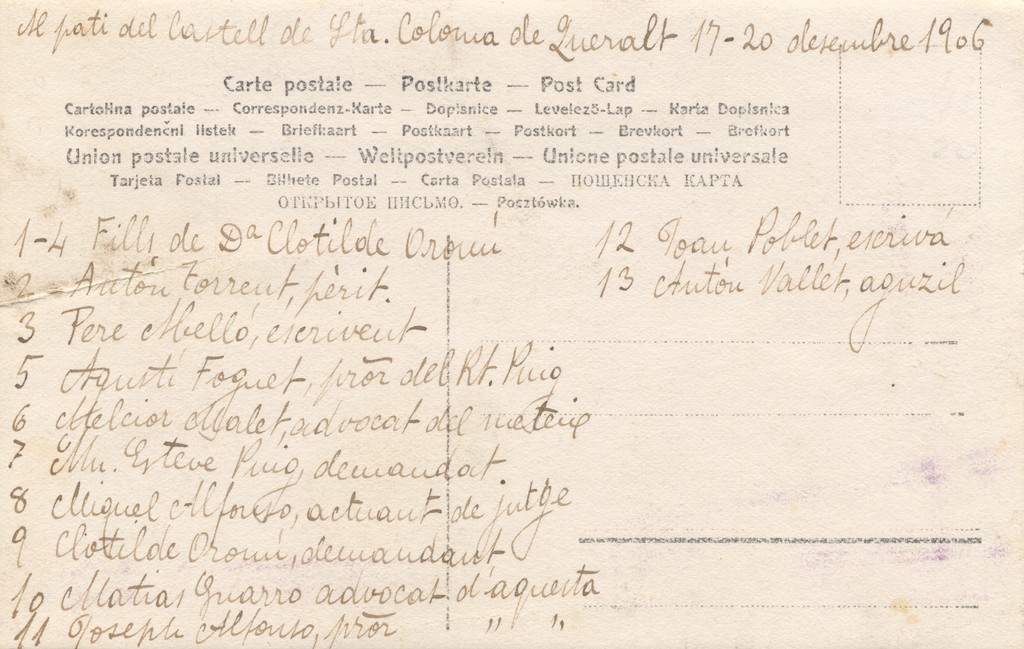 Al pati del Castell de Sta. Coloma de Queralt 17-20 desembre 1906
Carte postale — Postkarte — Post Card
Cartolina postale — Correspondenz-Karte — Dopisnice — Levelező-Lap — Karta Dopisnica
Korespondenční listek — Briefkaart — Postkaart — Postkort — Brevkort — Brefkort
Union postale universelle — Weltpostverein — Unione postale universale
Tarjeta Postal — Bilhete Postal — Carta Postala — ПОЩЕНСКА КАРТА
ОТКРЫТОЕ ПИСЬМО. — Posztówka.
1-4 Fills de Dª Clotilde Oromí
2 Antón Torrent, pèrit.
3 Pere Melló, escrivent
5 Agustí Foguet, prōr del Rt. Puig
6 Melcior Malet, advocat del mateix
7 Mn. Esteve Puig, demandat
8 Miquel Alfonso, actuant de jutge
9 Clotilde Oromí, demandant
10 Matias Guarro advocat d'aquesta
11 Joseph Alfonso, prōr " "
12 Joan Poblet, escrivá
13 Antón Vallet, aguzil